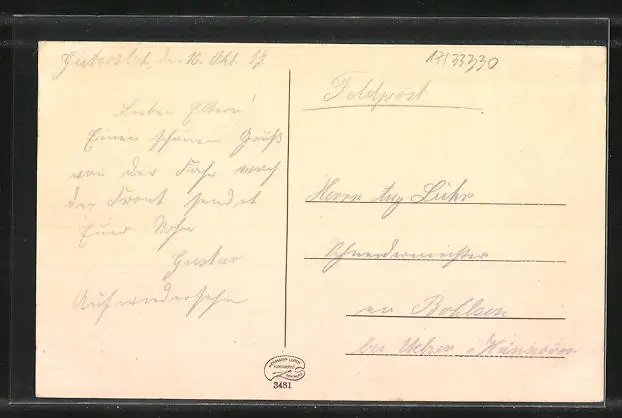 Gütersloh, den 16. Okt. 17
Lieben Eltern!
Einen schönen Gruß
von der Fahr nach
der Front sendet
Euer Sohn
Gustav
Auf wiedersehn
Feldpost
Herrn Aug Lühr
Schneidermeister
in Bohlsen
bei Uelzen Hannover
3481